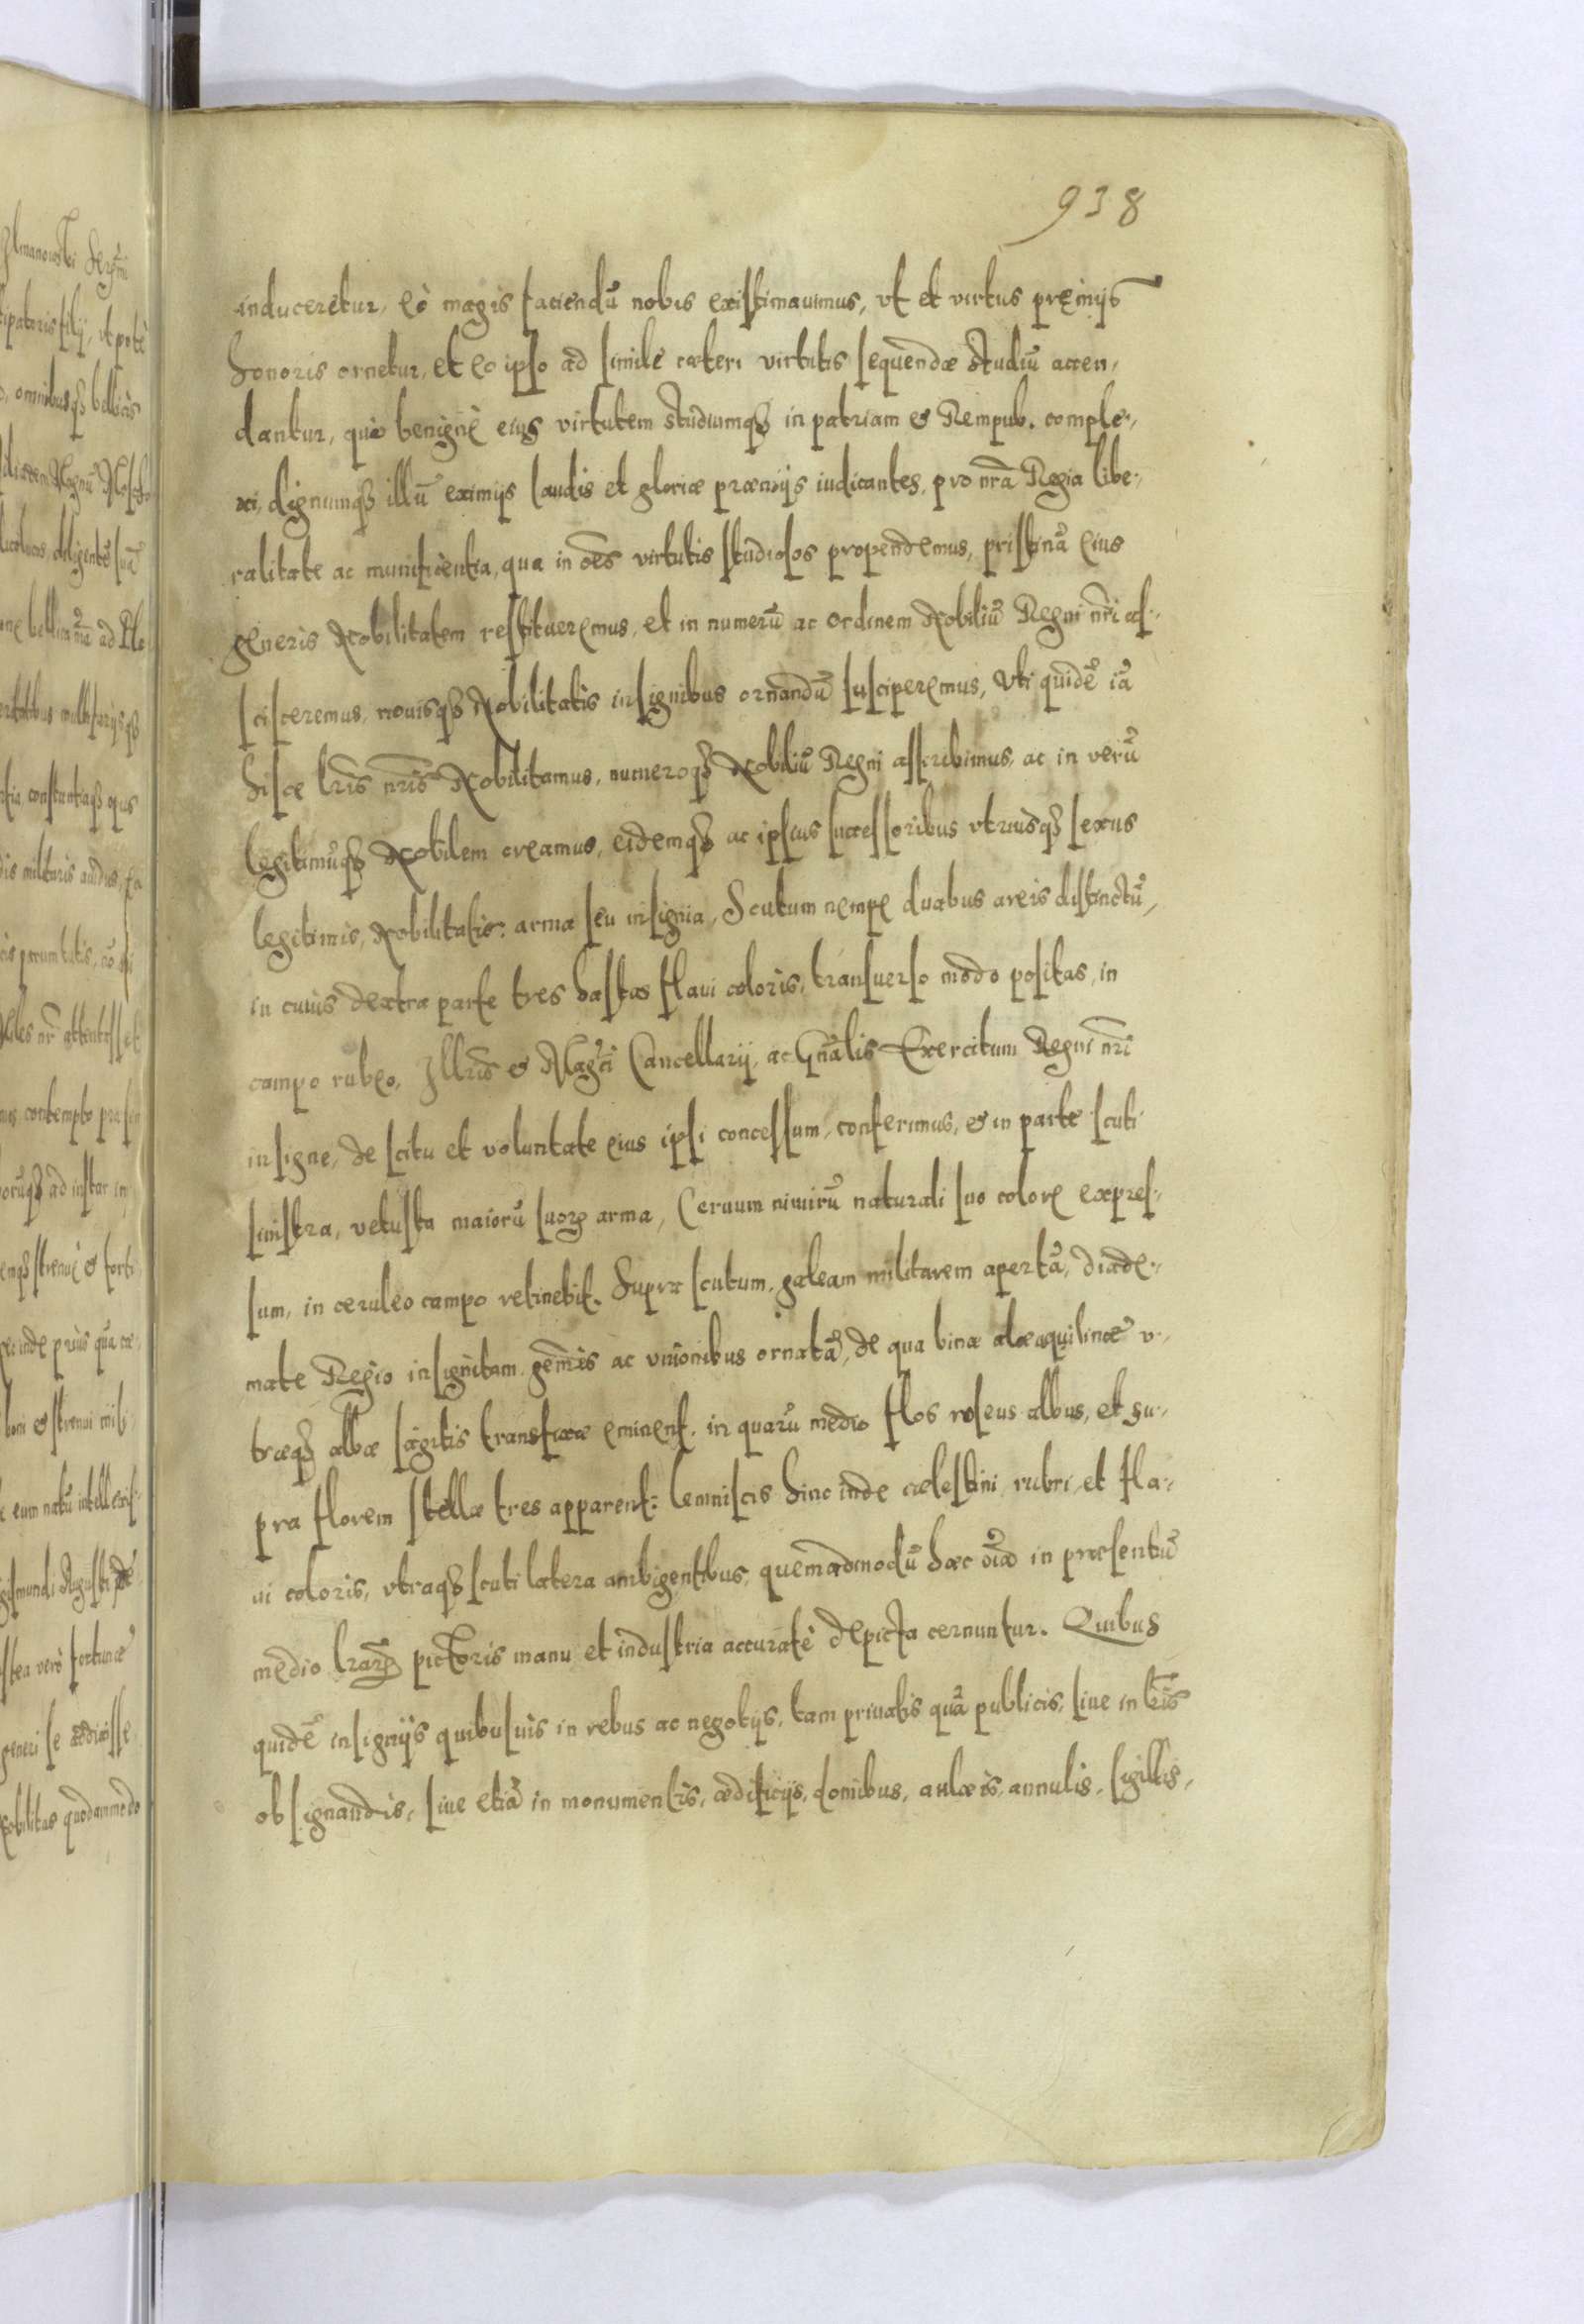 938
induceretur, eò magis faciendũ nobis existimauimus, vt et virtus pręmijs
honoris ornetur, et eo ipso ad simile cæteri virtutis sequendæ studiũ accen,
dantur, quò benignè eius virtutem studiumq̃ in patriam & Rempub. comple-,
xi, dignumq̃ illũ eximijs laudis et gloriæ præmijs iudicantes, pro nr̃a Regia libe-,
ralitate ac munificentia, qua in oẽs virtutis studiosos propendemus, pristinã eius
generis Nobilitatem restitueremus, et in numerũ ac ordinem Nobiliũ Regni nr̃i ad-
scisceremus, nouisq̃ Nobilitatis insignibus ornandũ susciperemus, Vti quidẽ iã
hisce lr̃is nr̃is Nobilitamus, numeroq̃ Nobiliũ Regni asscribimus, ac in verũ
legitimũq̃ Nobilem creamus, eidemq̃ ac ipsius successoribus vtriusq̃ sexus
legitimis, Nobilitatis: arma seu insignia, Scutum nempe duabus areis distinctũ,
in cuius dextra parte tres hastas flaui coloris, transuerso modo positas, in
campo rubeo, Illr̃is & Mag̃ci Cancellarij, ac Gñalis Exercitum Regni nr̃i
insigne, de scitu et voluntate eius ipsi concessum, conferimus, & in parte scuti
sinistra, vetusta maiorũ suoꝝ arma, Ceruum nimirũ naturali suo colore expres-
sum, in ceruleo campo retinebit. Supra scutum, galeam militarem apertã, diade-
mate Regio insignitam gem̃is ac vnionibus ornatã, de qua binæ alæ aquilinæ v-
træq̃ albæ sagittis transfixæ eminent. in quarũ medio flos roseus albus, et su-
pra florem stellæ tres apparent: lemniscis hinc inde cælestini, rubri, et fla-
ui coloris, vtraq̃ scuti latera ambigentibus, quemadmodũ hæc oĩa in præsentiũ
medio lr̃arꝝ pictoris manu et industria accuratè depicta cernuntur. Quibus
quidẽ insignijs quibusuis in rebus ac negotijs, tam priuatis quã publicis, siue in lr̃is
obsignandis, siue etiã in monumentis, ædificijs, domibus, aulæis, annulis, sigillis,